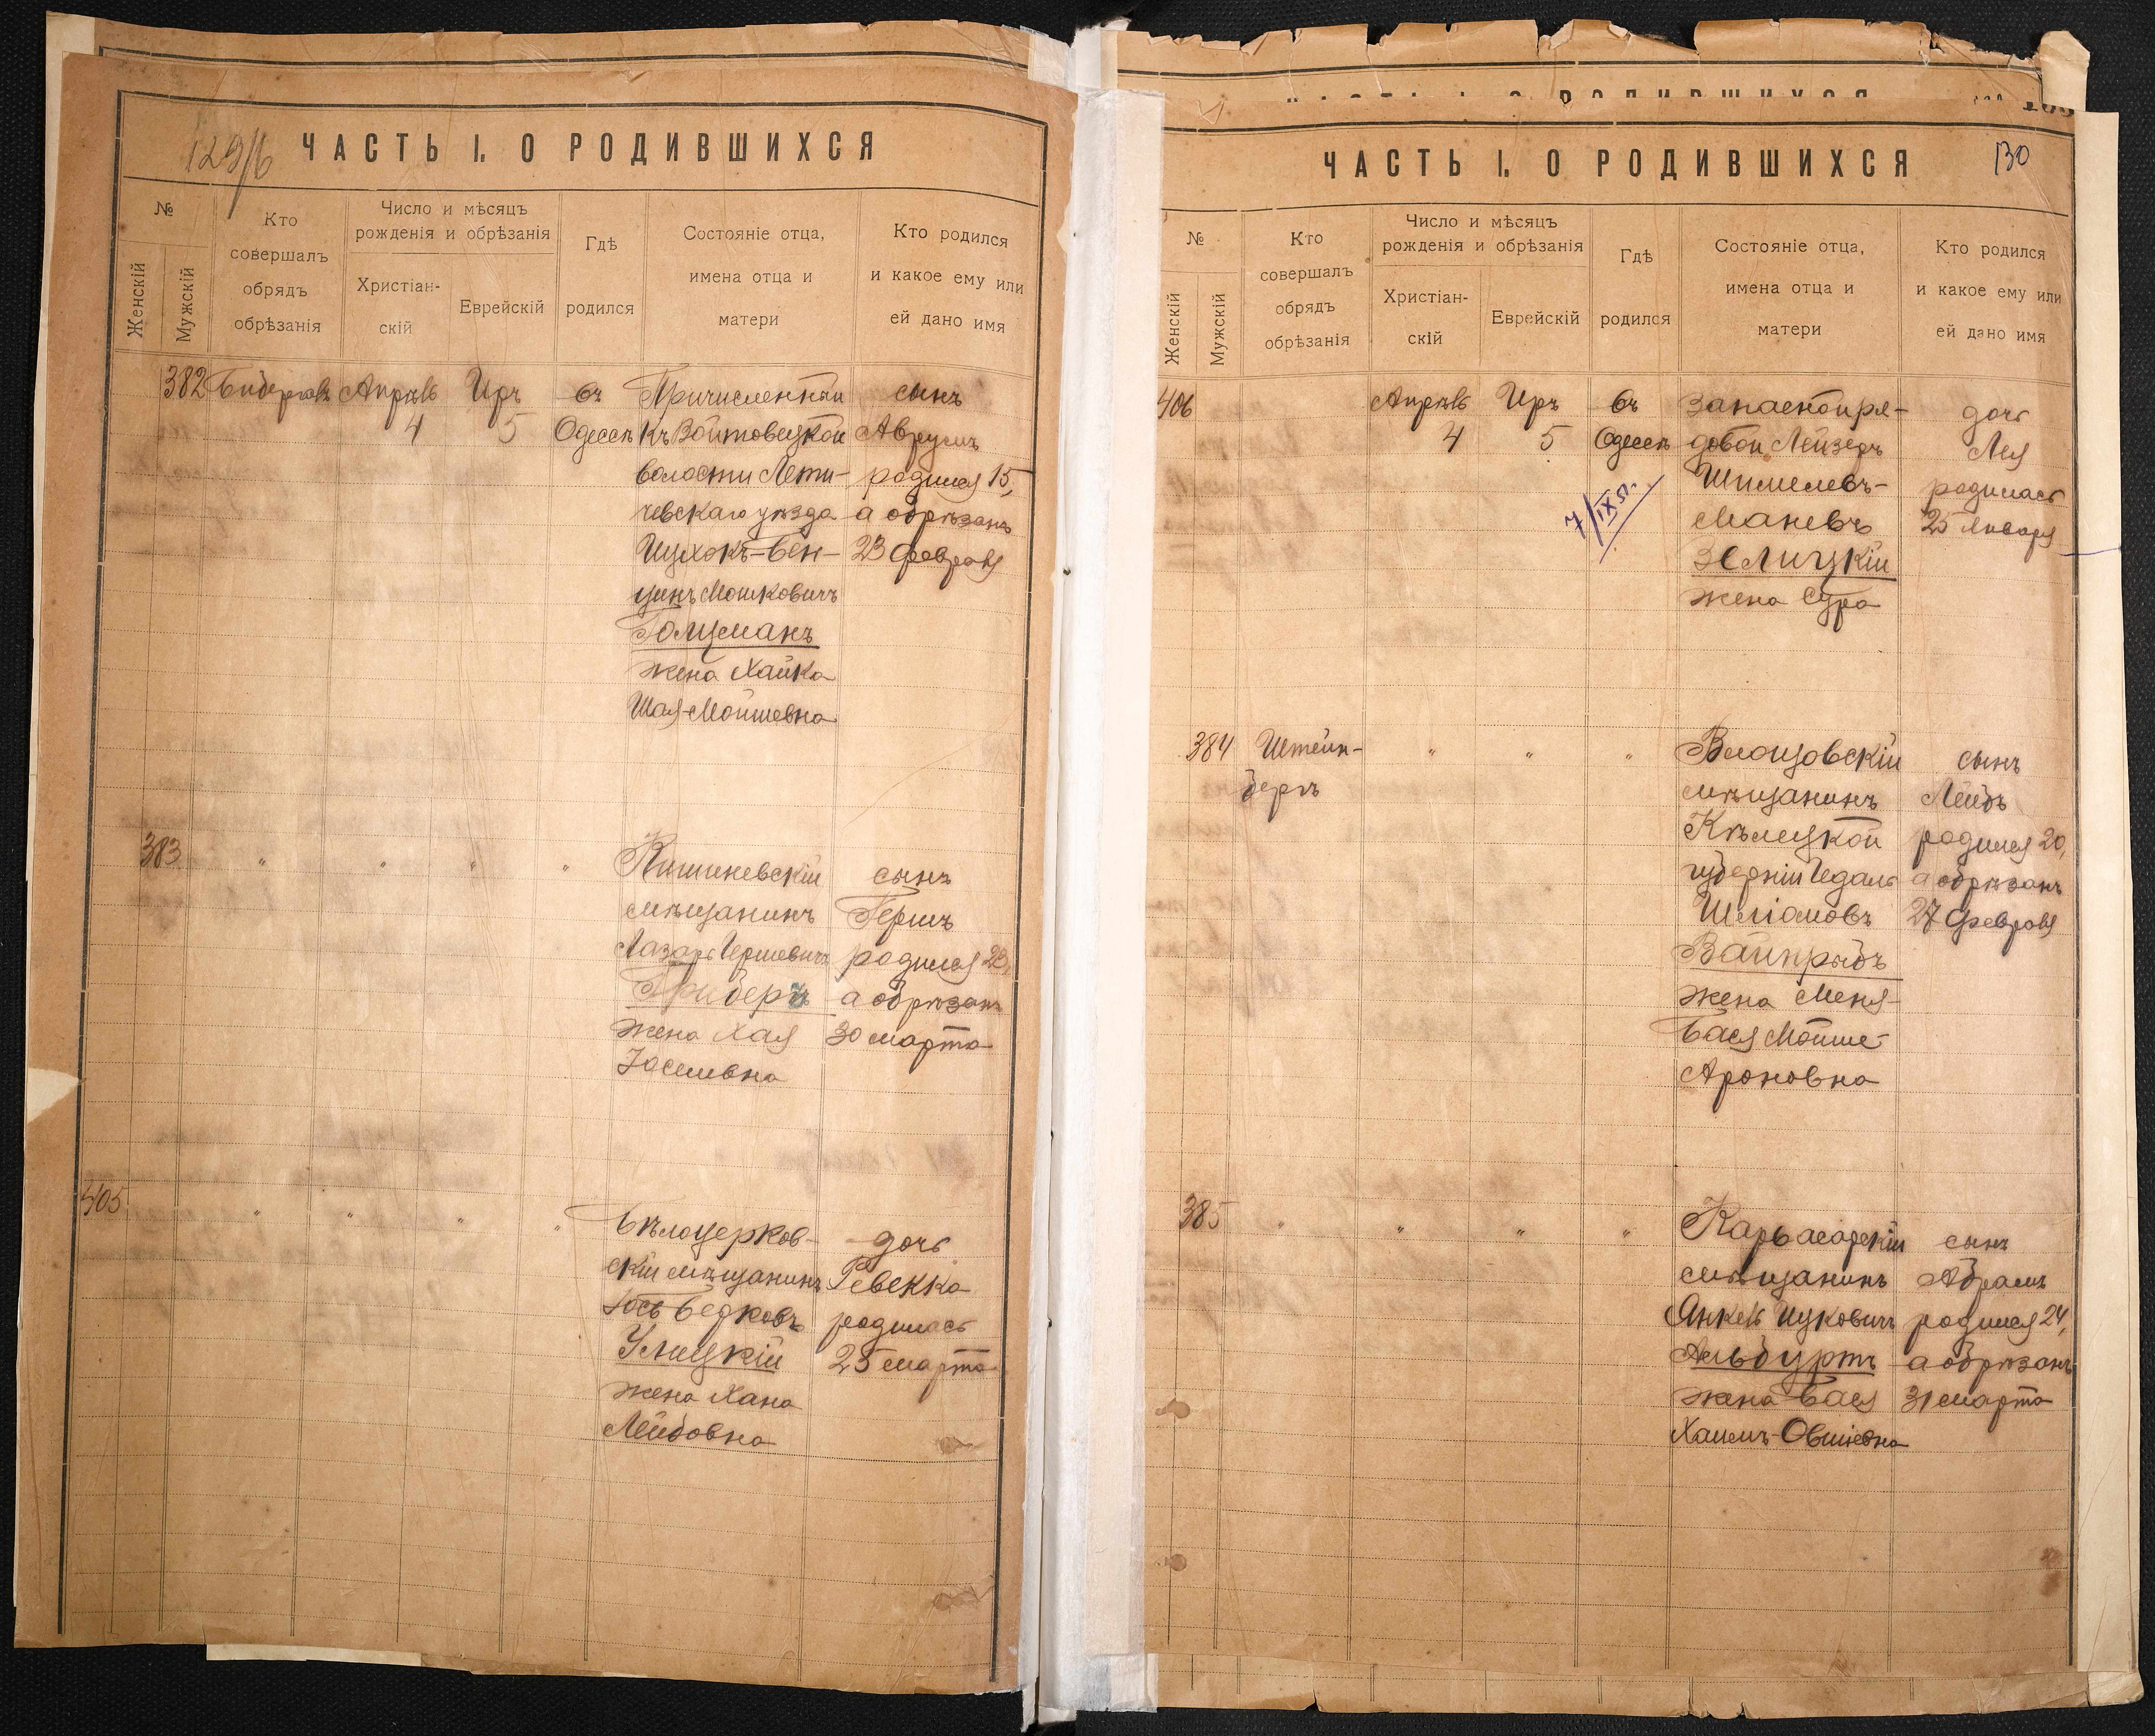 129/б
ЧАСТЬ I. О РОДИВШИХСЯ
№
Женскій
Мужскій
Кто
совершалъ
обрядъ
обрѣзанія
Число и мѣсяцъ
рожденія и обрѣзанія
Христіан-
скій
Еврейскій
Гдѣ
родился
Состояніе отца,
имена отца и
матери
Кто родился
и какое ему или
ей дано имя
382 Апрѣль Иръ въ Причисленный сынъ
4 5 Одессѣ къ Войтовецкой Аврумъ
волости Лети- родился 15,
чевскаго уѣзда а обрѣзанъ
Ицхокъ-Бен- 23 февраля
ціинъ Мошковичъ
Голцманъ
жена Хайка
Шая-Мойшевна
383 " " " " Кишиневскій сынъ
мѣщанинъ Гершъ
Лазарь Гершевичъ родился 23,
Гриберъ а обрѣзанъ
жена Хая 30 марта
Іосиевна
405 " " " " Бѣлоцерков- дочь
скій мѣщанинъ Ревекка
Іось Бедковъ родилась
Улицкій 25 марта
жена Хана
Лейбовна
130
ЧАСТЬ I. О РОДИВШИХСЯ
№
Женскій
Мужскій
Кто
совершалъ
обрядъ
обрѣзанія
Число и мѣсяцъ
рожденія и обрѣзанія
Христіан-
скій
Еврейскій
Гдѣ
родился
Состояніе отца,
имена отца и
матери
Кто родился
и какое ему или
ей дано имя
406 Апрѣль Иръ въ Запасной ря- дочь
4 5 Одессѣ довой Лейзеръ Лея
7/IX 51. Шмилевъ- родилась
Маневъ 25 января
Зелицкій
жена Сура
384 Штейн- " " " Влощовскій сынъ
бергъ мѣщанинъ Лейбъ
Кѣлецкой родился 20,
губерніи Іедаль а обрѣзанъ
Шліомовъ 27 февраля
Вайнрыбъ
жена Меня-
Бася Мойше-
Ароновна
385 " " " " Карвасарскій сынъ
мѣщанинъ Абрамъ
Янкель Ицковичъ родился 24,
Альбуртъ а обрѣзанъ
жена Бася 31 марта
Хаимъ-Овшіевна